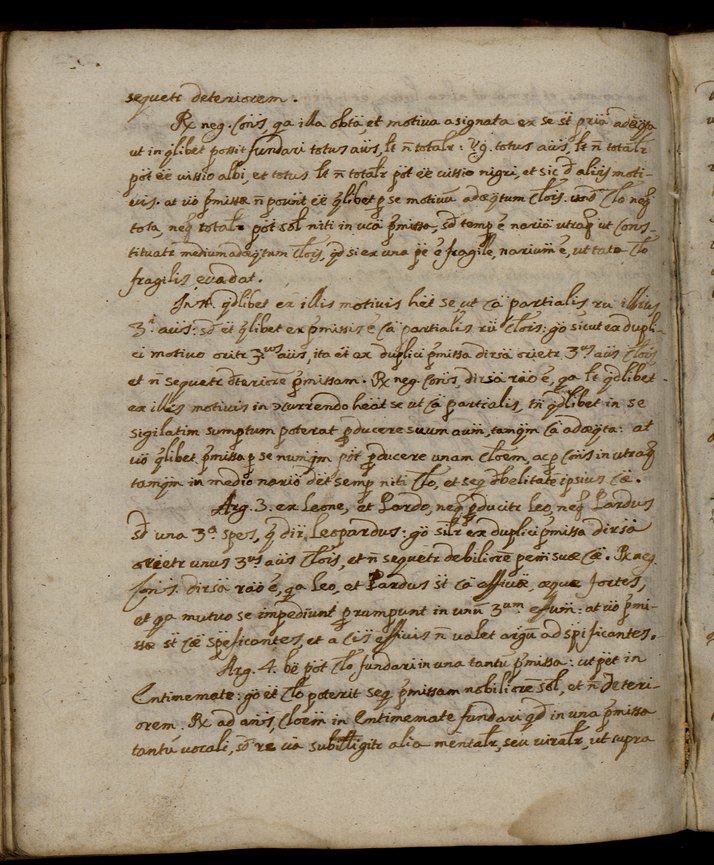 sequetr deteriorem.
Rx neg. Conis, qa illa obta, et motiva assignata ex se st pria adæqta
ut in qlibet possit fundari totus aüs, lt ñ totalr: Vg. totus aüs, lt ñ totalr
pot eē vissio albi, et totus lt ñ totalr pot eē vissio nigri, et sic d aliis moti-
vis. at vō pmissæ ñ pount eē qlibet p se motivū adæqtum Clois. und Clo neq
tota, neq totalr pot sol niti in una pmissa, sd semp ē naria utraq ut cons-
tituatr medium adæqtum Clois, qd si ex una pe ē fragile, narium ē, ut tota Clo
fragilis evadat.
Inst. qdlibet ex illis motivis het se ut ca partialis rii illius
3.i aüs: sd et qlibet ex pmissis ē ca partialis rii Clois: go sicut ex dupli-
ci motivo oritr 3.us aüs, ita et ex duplici pmissa dirsa orietr 3us aüs Clois
et ñ sequetr dteriorē pmissam. Rx neg. Conis, dirsa rao ē, qa lt qdlibet
ex illis motivis in ɔcurrendo heat se ut ca partialis, tñ qdlibet in se
sigilatim sumptum poterat pducere suum aum, tamqm ca adæqta: at
vō qlibet pmissa p se numqm pot pducere unam Cloem, ac p Conis in utraq
tamqm in medio nario det semp niti Clo, et seq dbelitate ipsius cæ.
Arg. 3. ex Leone, et Pardo, neq pducitr leo, neq Pardus
sd una 3.a spes, q dir Leopardus: go silr ex duplici pmissa dirsa
orietr unus 3us aüs Clois, et ñ sequetr debiliorē pem suæ cæ. Rx neg.
Conis. dirsa rao ē, qa Leo, et Pardus st cæ effivæ, æque fortes,
et qa mutuo se impediunt prumpunt in unū 3um effum: at vō pmi-
ssæ st cæ speficantes, et a cis effivis ñ valet argū ad spificantes.
Arg. 4. bē pot Clo fundari in una tantu pmissa: ut pet in
Entimemate: go et Clo poterit seq pmissam nobiliorē sol, et ñ deteri-
orem. Rx ad anis, Cloem in Entimemate fundari qd in una pmissa
tantū vocali, sd re va subitlligitr alia mentalr, seu viralr, ut supra